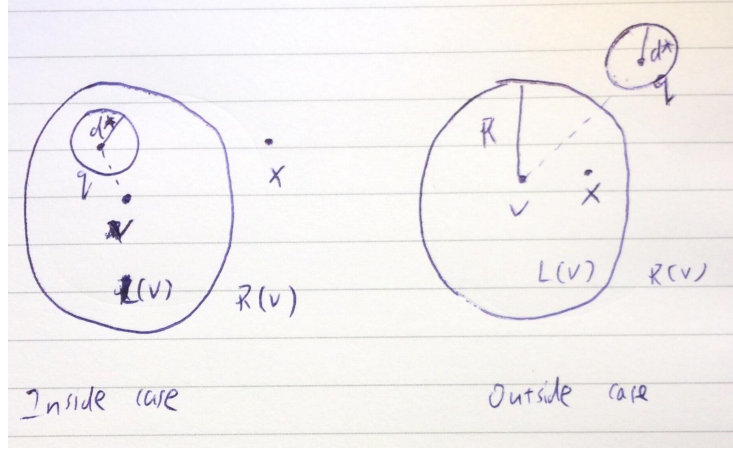 d*
q
x
v
L(v) R(v)
Inside case
d*
q
R
x
v
L(v) R(v)
Outside case